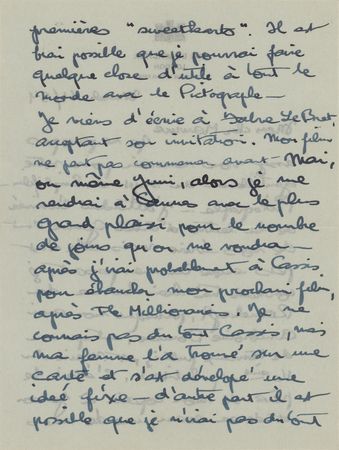 premières "sweethearts". Il est
vrai possible que je pourrai faire
quelque chose d'utile à tout le
monde avec le Pictographe —
Je viens d'écrire à Favre Le Bret,
acceptant son invitation. Mon film
ne part pas commencer avant Mai,
ou même Juin, alors je me
rendrai à Cannes avec le plus
grand plaisir pour le nombre
de jours qu'on me voudra —
après j'irai probablement à Cassis
pour ébaucher mon prochain film,
après The Millionairess. Je ne
connais pas du tout Cassis, mais
ma femme l'a trouvé sur une
carte et s'est dévelopé une
ideé fixe — d'autre part il est
possible que je n'irai pas du tout